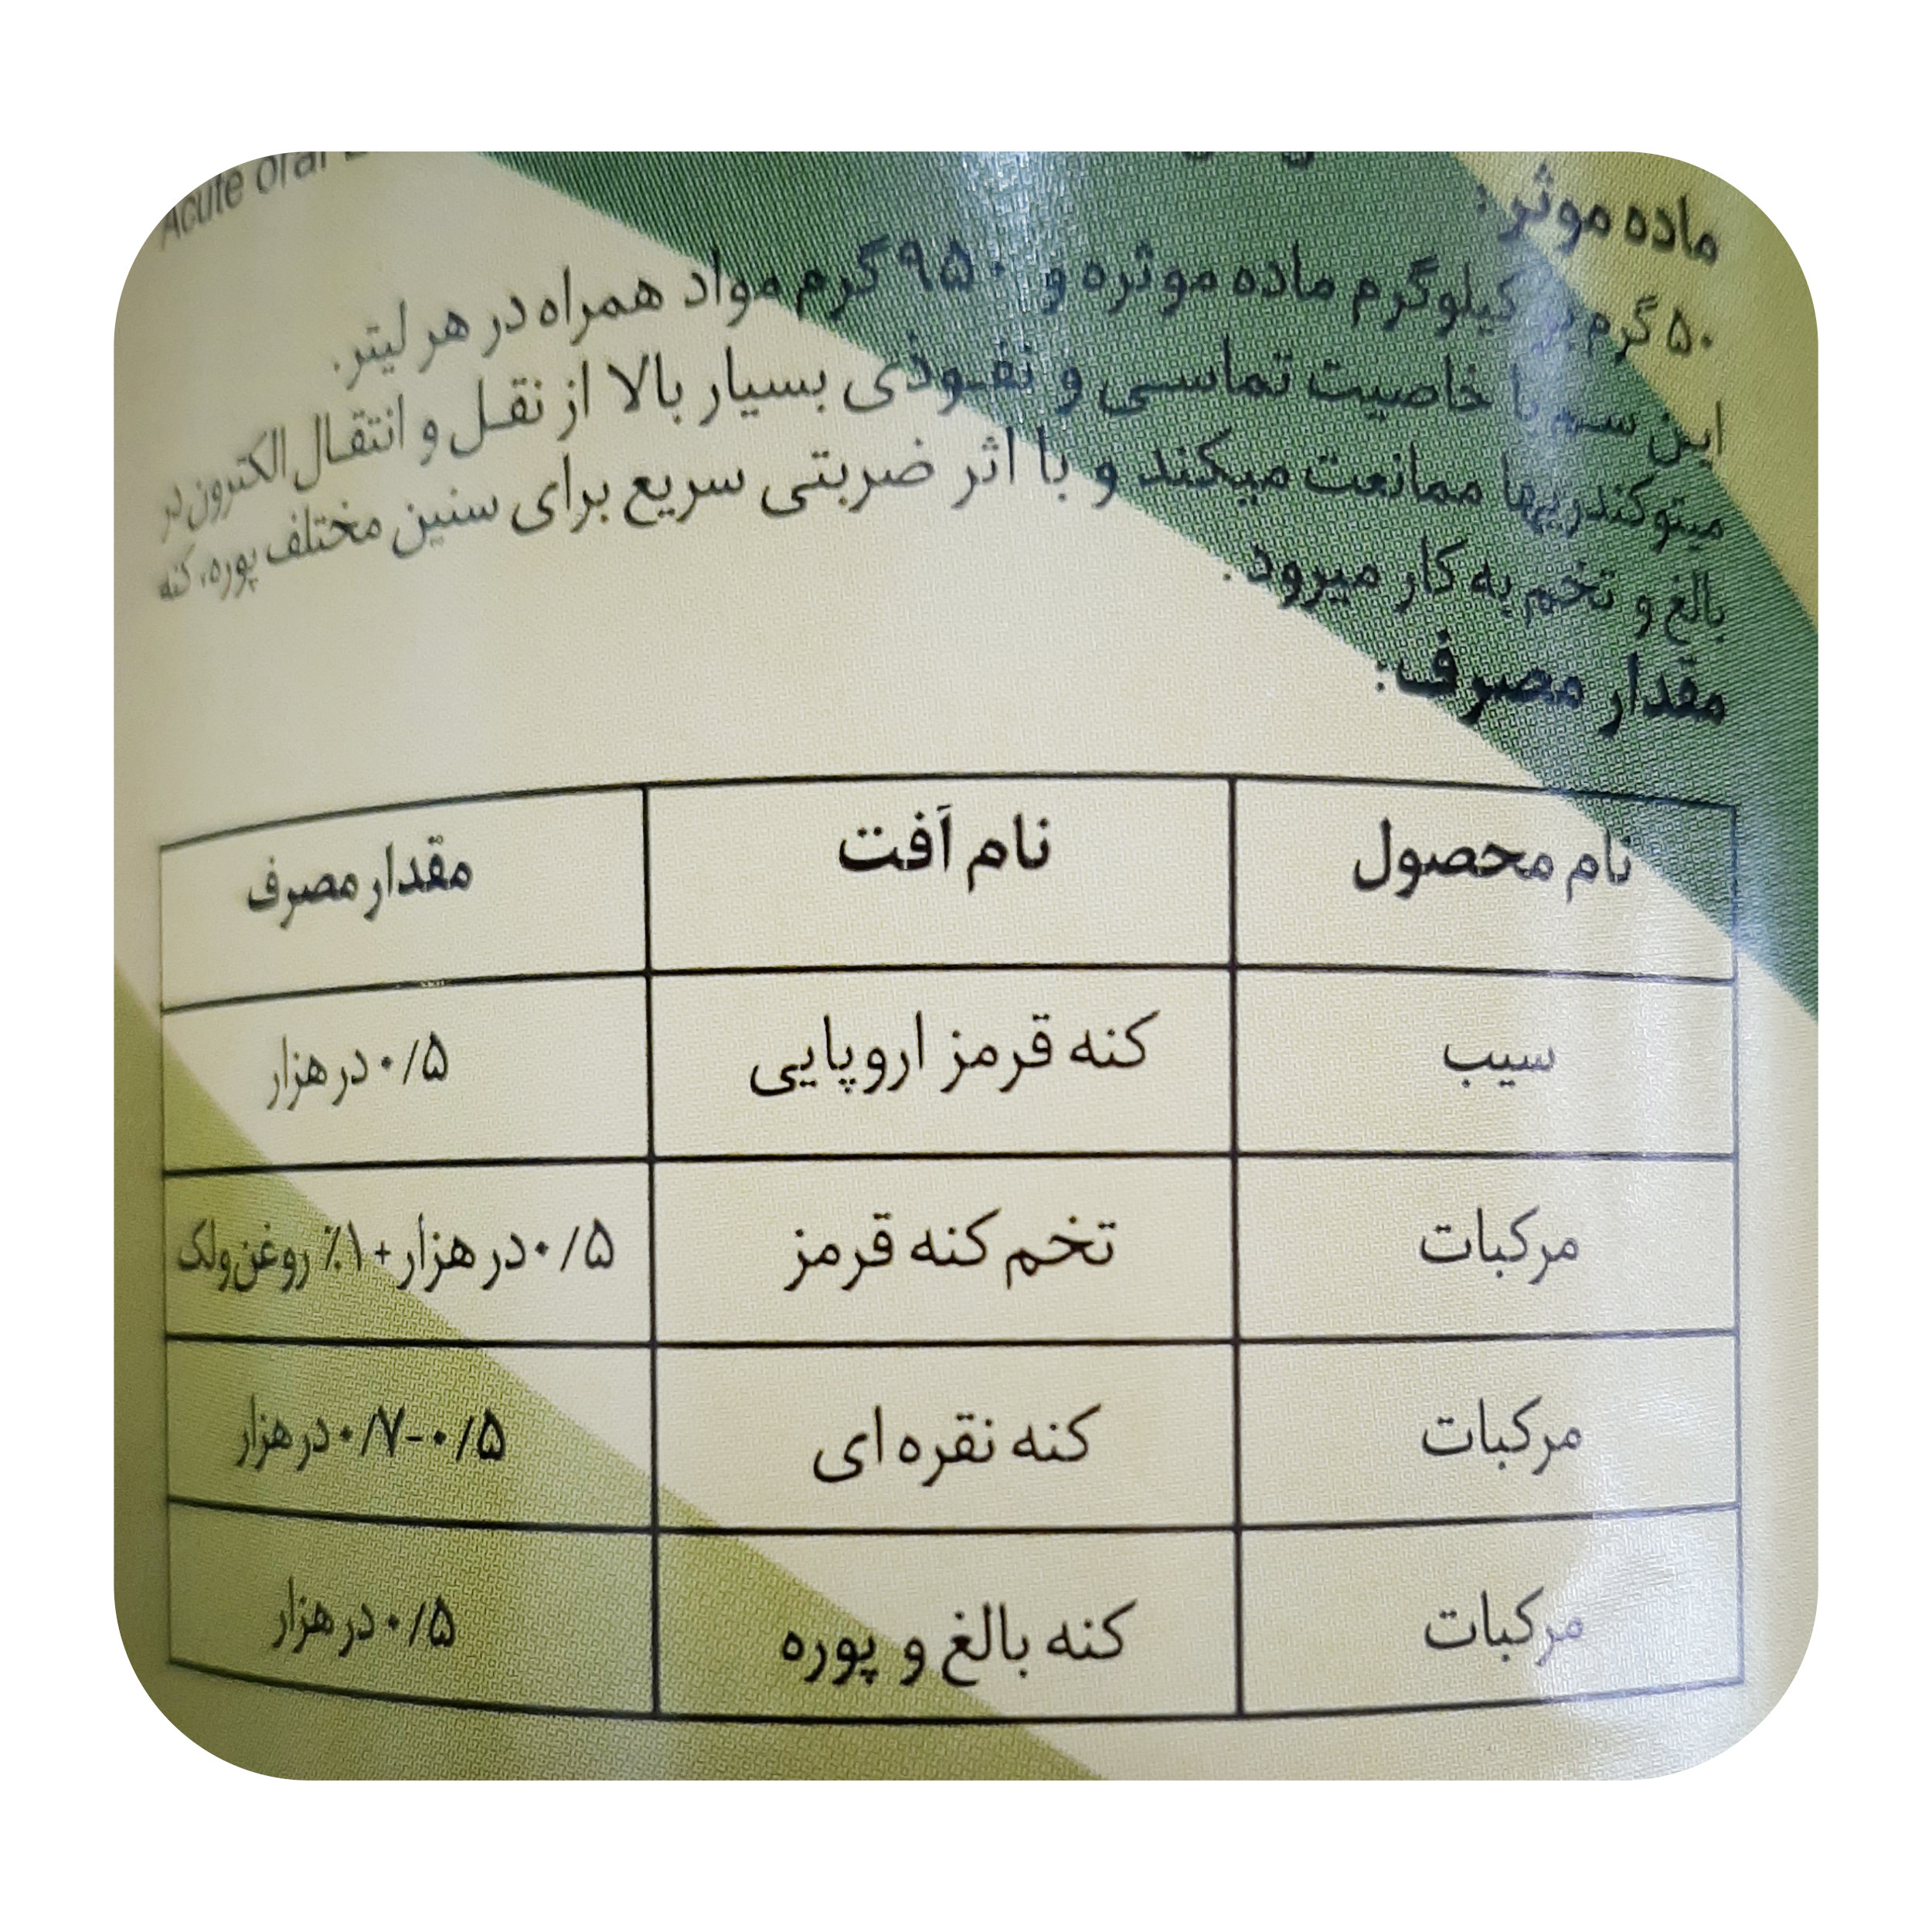 Acute oral
ماده موثر:
۵۰ گرم بر کیلوگرم ماده موثره و ۹۵۰ گرم مواد همراه در هر لیتر.
این سم با خاصیت تماسی و نفوذی بسیار بالا از نقل و انتقال الکترون در
میتوکندریها ممانعت میکند و با اثر ضربتی سریع برای سنین مختلف پوره، کنه
بالغ و تخم به کار میرود.
مقدار مصرف:
نام محصول نام آفت مقدار مصرف
سیب کنه قرمز اروپایی ۰/۵ در هزار
مرکبات تخم کنه قرمز ۰/۵ در هزار + ۱٪ روغن ولک
مرکبات کنه نقره ای ۰/۵-۰/۷ در هزار
مرکبات کنه بالغ و پوره ۰/۵ در هزار